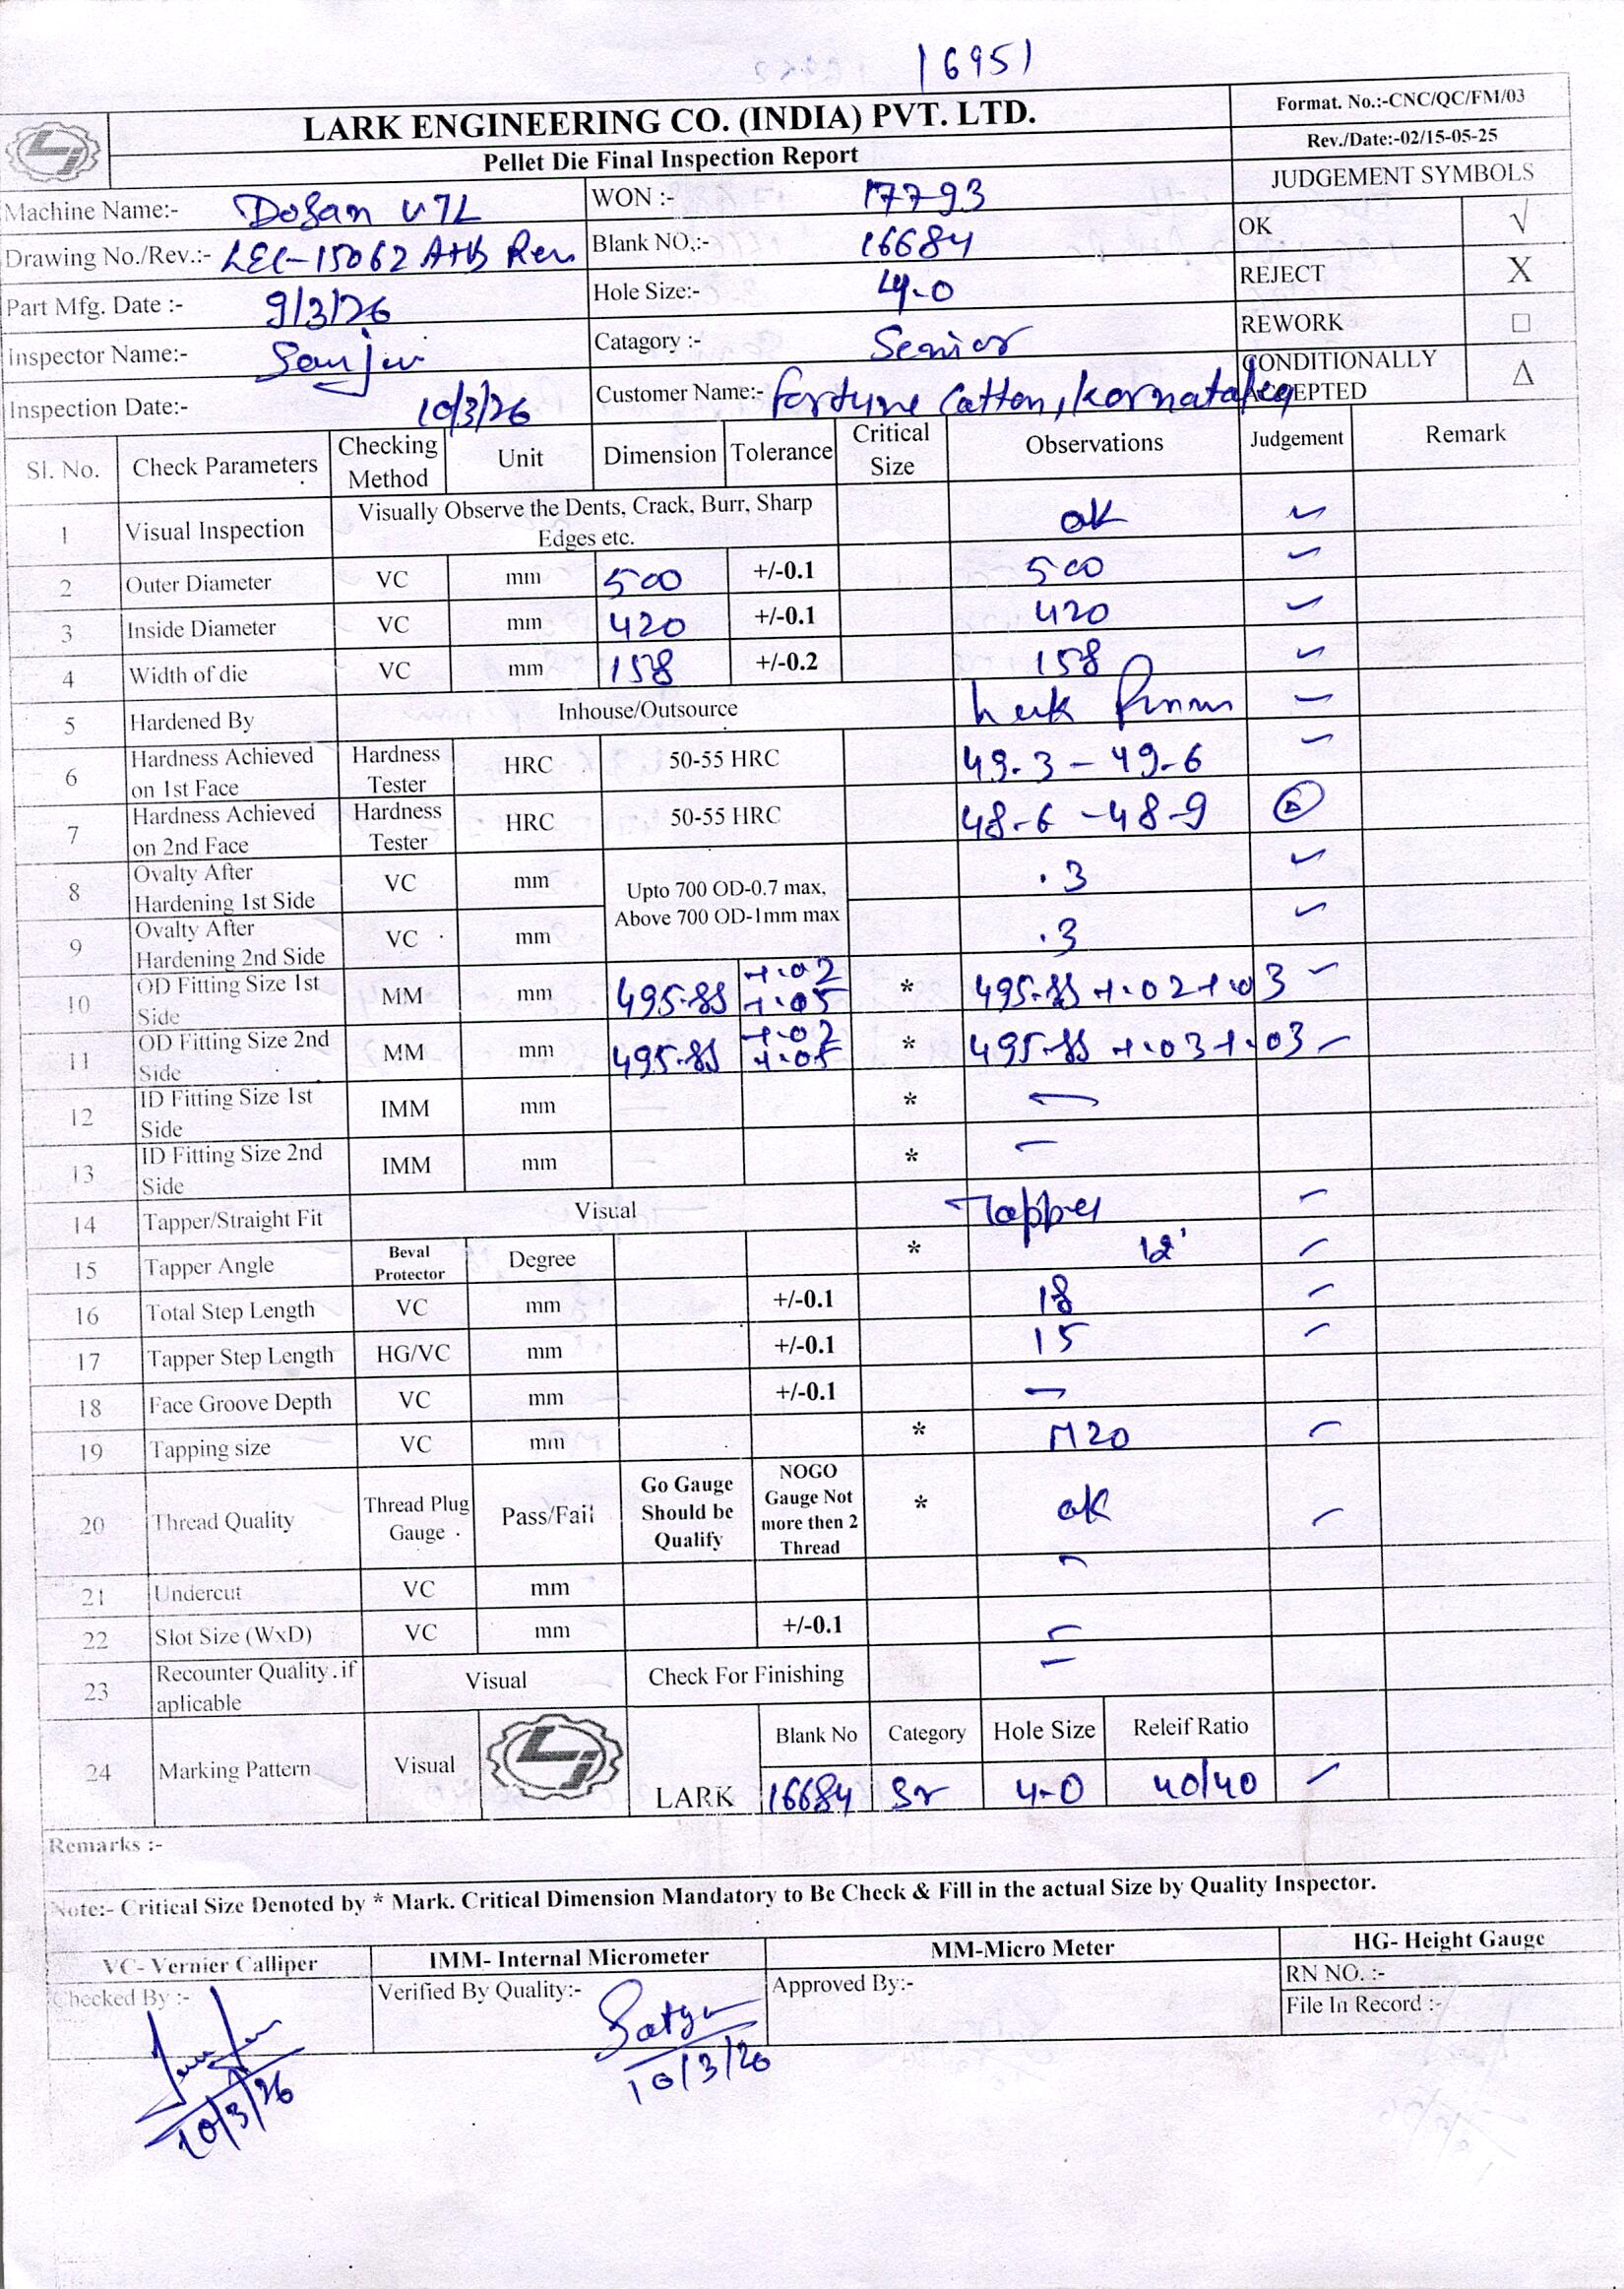 16951
LARK ENGINEERING CO. (INDIA) PVT. LTD.
Pellet Die Final Inspection Report
Format. No.:-CNC/QC/FM/03
Rev./Date:-02/15-05-25
JUDGEMENT SYMBOLS
OK √
REJECT X
REWORK □
CONDITIONALLY ACCEPTED Δ
Machine Name:- Dosan
WON :- 17793
Drawing No./Rev.:- LEC-15062 A+B Rev
Blank NO,:- 16684
Part Mfg. Date :- 9/3/26
Hole Size:- 4.0
Inspector Name:- Sanju
Catagory :- Senior
Inspection Date:- 10/3/26
Customer Name:- Fortune Catton, Karnataka
Sl. No. Check Parameters Checking Method Unit Dimension Tolerance Critical Size Observations Judgement Remark
1 Visual Inspection Visually Observe the Dents, Crack, Burr, Sharp Edges etc. ok ✓
2 Outer Diameter VC mm 500 +/-0.1 500 ✓
3 Inside Diameter VC mm 420 +/-0.1 420 ✓
4 Width of die VC mm 158 +/-0.2 158 ✓
5 Hardened By Inhouse/Outsource
6 Hardness Achieved on 1st Face Hardness Tester HRC 50-55 HRC 49.3 - 49.6 ✓
7 Hardness Achieved on 2nd Face Hardness Tester HRC 50-55 HRC 48.6 - 48.9 Δ
8 Ovalty After Hardening 1st Side VC mm Upto 700 OD-0.7 max, Above 700 OD-1mm max .3 ✓
9 Ovalty After Hardening 2nd Side VC mm .3 ✓
10 OD Fitting Size 1st Side MM mm 495.85 +.02 +.05 * 495.85 +.02 +.03 ✓
11 OD Fitting Size 2nd Side MM mm 495.85 +.02 +.05 * 495.85 +.03 +.03 ✓
12 ID Fitting Size 1st Side IMM mm * —
13 ID Fitting Size 2nd Side IMM mm * —
14 Tapper/Straight Fit Visual Tapper ✓
15 Tapper Angle Beval Protector Degree * 12° ✓
16 Total Step Length VC mm +/-0.1 18 ✓
17 Tapper Step Length HG/VC mm +/-0.1 15 ✓
18 Face Groove Depth VC mm +/-0.1 —
19 Tapping size VC mm * M20 ✓
20 Thread Quality Thread Plug Gauge Pass/Fail Go Gauge Should be Qualify NOGO Gauge Not more then 2 Thread * ok ✓
21 Undercut VC mm —
22 Slot Size (WxD) VC mm +/-0.1 —
23 Recounter Quality.if aplicable Visual Check For Finishing —
24 Marking Pattern Visual LARK Blank No Category Hole Size Releif Ratio
16684 Sr 4.0 40/40 ✓
Remarks :-
Note:- Critical Size Denoted by * Mark. Critical Dimension Mandatory to Be Check & Fill in the actual Size by Quality Inspector.
VC- Vernier Calliper IMM- Internal Micrometer MM-Micro Meter HG- Height Gauge
Checked By :- Verified By Quality:- Satya Approved By:- RN NO. :-
File In Record :-
10/3/26 10/3/26